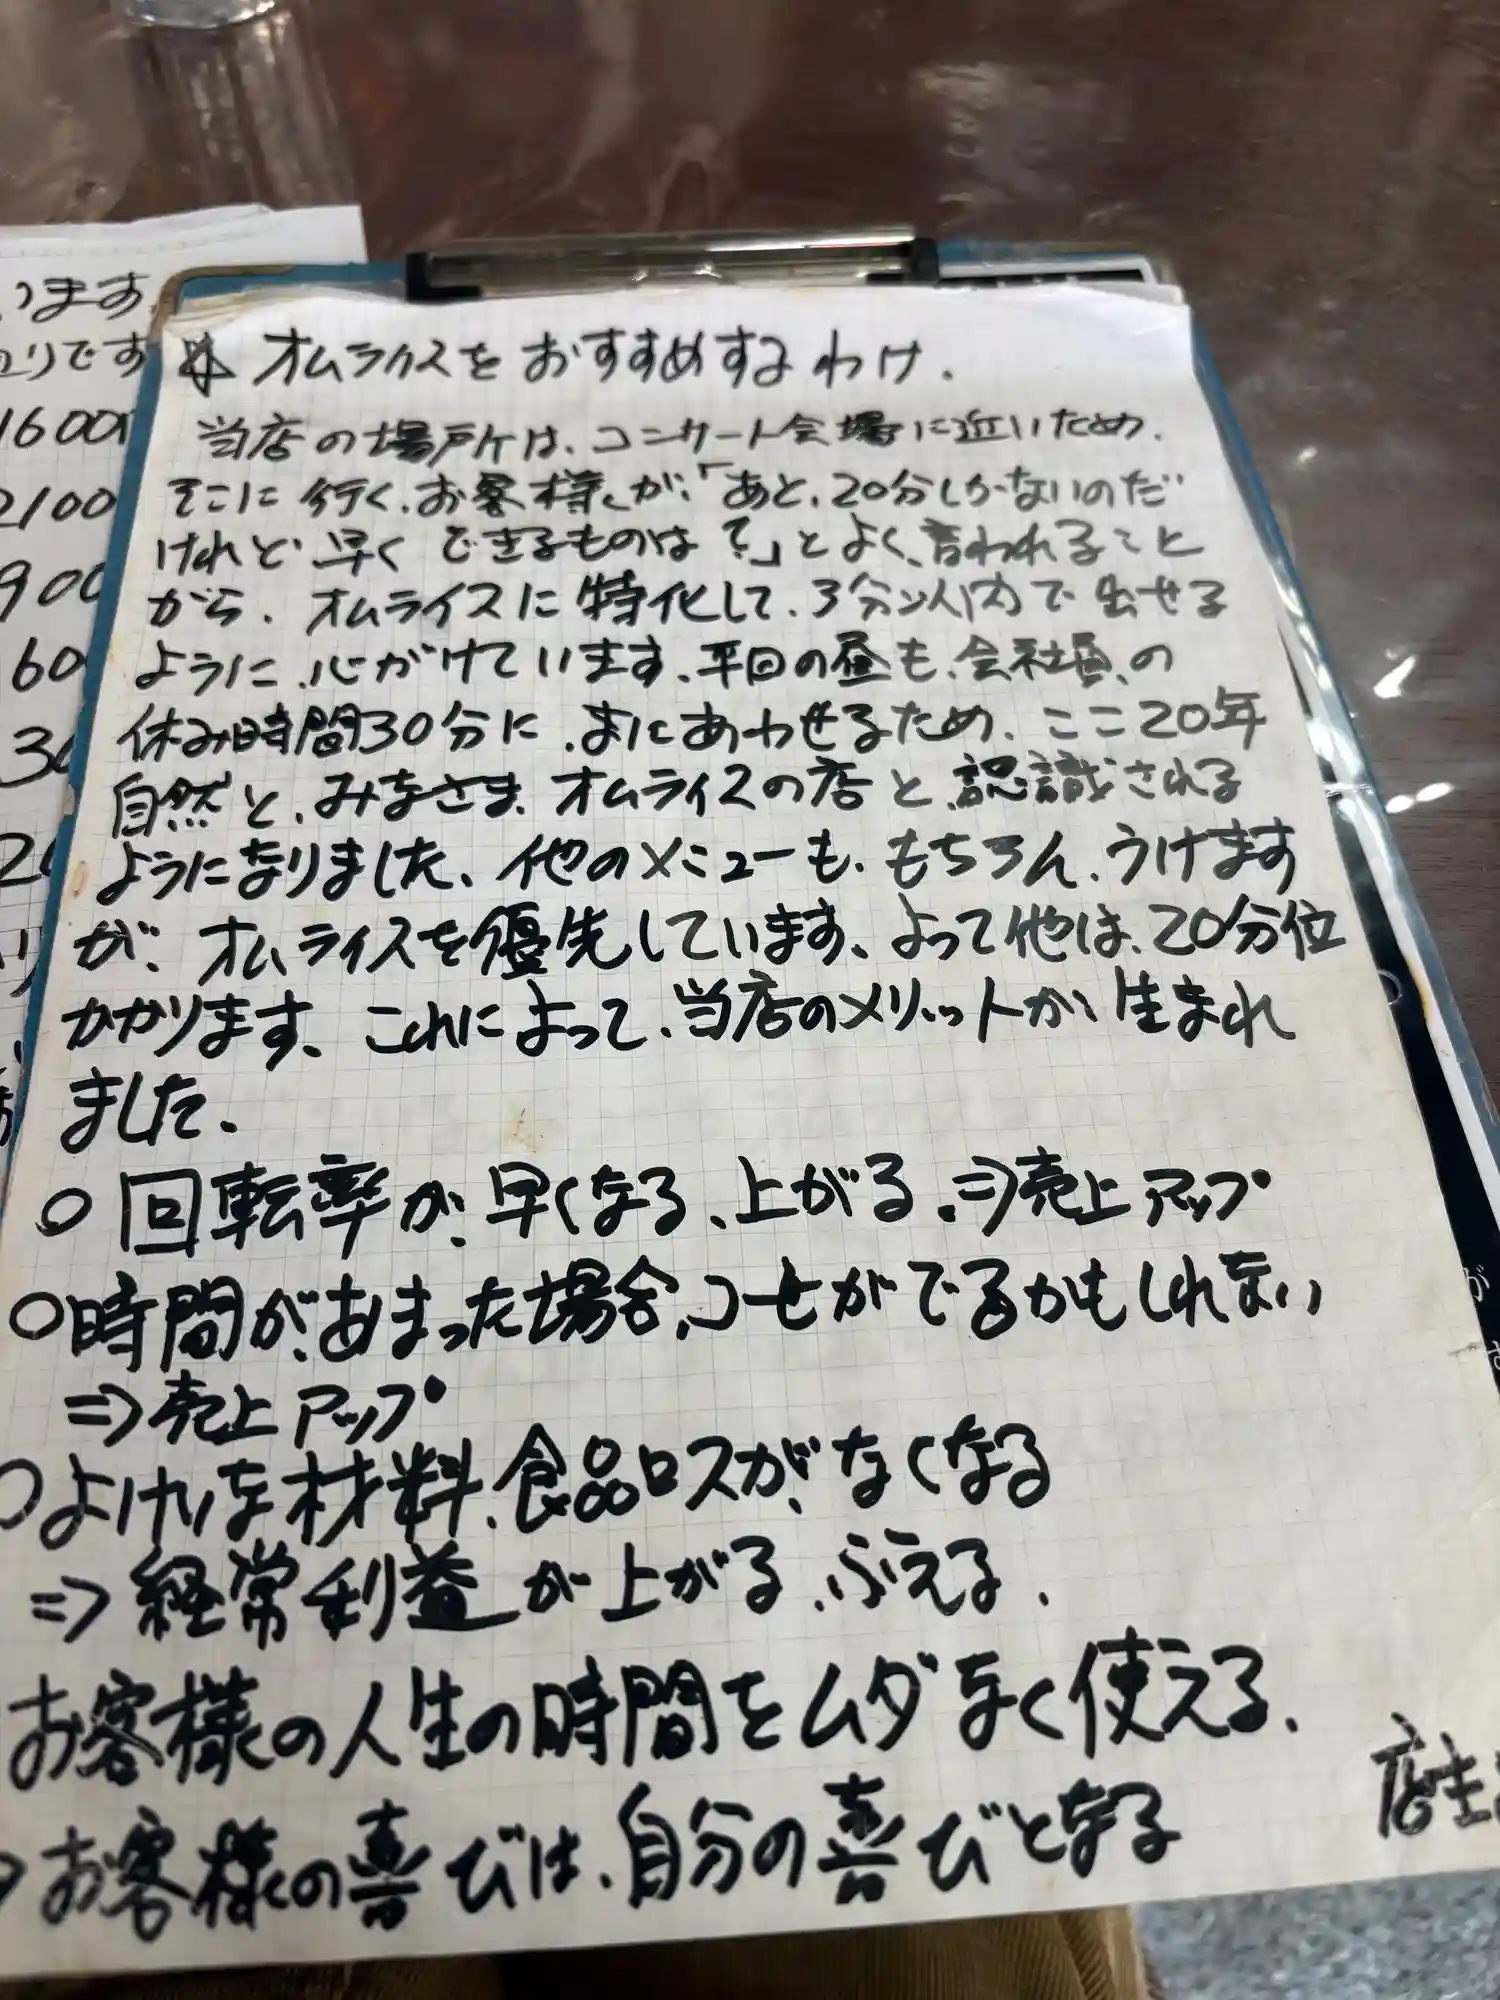 います
りです
1600円
2100
900
☆ オムライスをおすすめするわけ.
当店の場所は、コンサート会場に近いため、
そこに行く、お客様、が、「あと、20分しかないのだ
けれど 早く できるものは?」とよく、言われること
から、オムライスに特化して、3分以内で出せる
ように、心がけています、平日の昼も、会社員、の
休み時間30分に、まにあわせるため、ここ20年
自然と、みなさま、オムライスの店と、認識される
ようになりました、他のメニューも、もちろん、うけます
が、オムライスを優先しています、よって他は、20分位
かかります、これによって、当店のメリットが、生まれ
ました.
○ 回転率が、早くなる、上がる、⇒売上アップ
○時間が、あまった場合、コーヒがでるかもしれない
⇒売上アップ
○よけいな材料、食品ロスが、なくなる
⇒経常利益が上がる、ふえる.
お客様の人生の時間をムダなく使える、
お客様の喜びは、自分の喜びとなる
店主